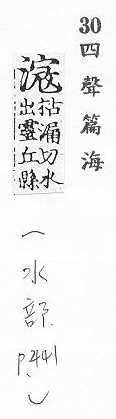 30 四聲篇海
枯漏切水
出靈丘縣
（水部 p.441）